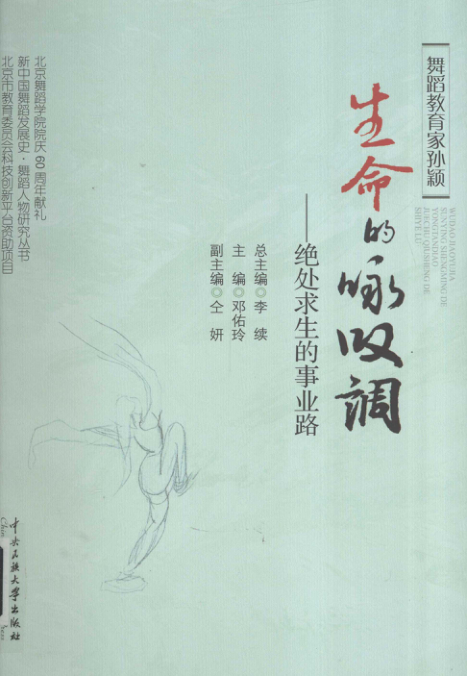 舞蹈教育家孙颖
WUDAO JIAOYUJIA
SUNYING SHENGMING DE
YONGTANDIAO
JUECHU QIUSHENG DE
SHIYE LU
生命的咏叹調
——绝处求生的事业路
总主编◎李 续
主 编◎邓佑玲
副主编◎仝 妍
北京舞蹈学院院庆60周年献礼
新中国舞蹈发展史·舞蹈人物研究丛书
北京市教育委员会科技创新平台资助项目
中央民族大学出版社